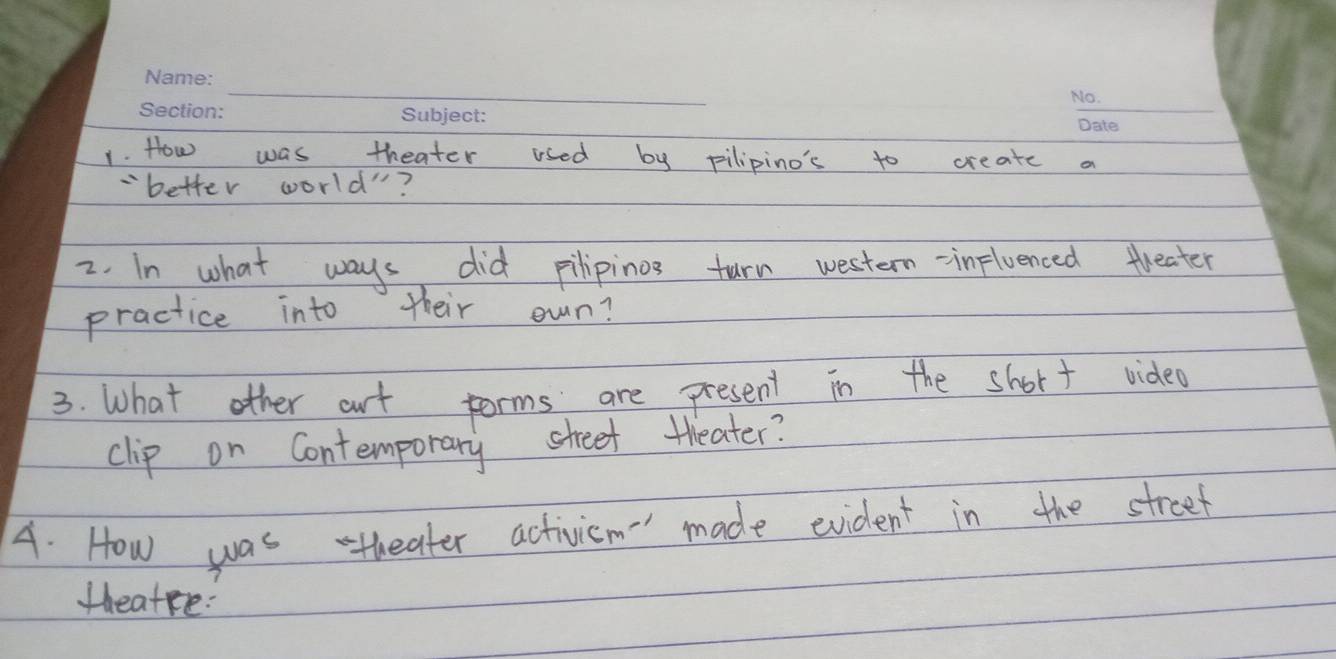 Name:
No.
Section: Subject:
Date
1. How was theater used by pilipino's to create a
"better world"?
2. In what ways did pilipinos turn western-influenced theater
practice into their own?
3. What other art forms are present in the short video
clip on Contemporary street theater?
4. How was "theater activism" made evident in the street
theatre?